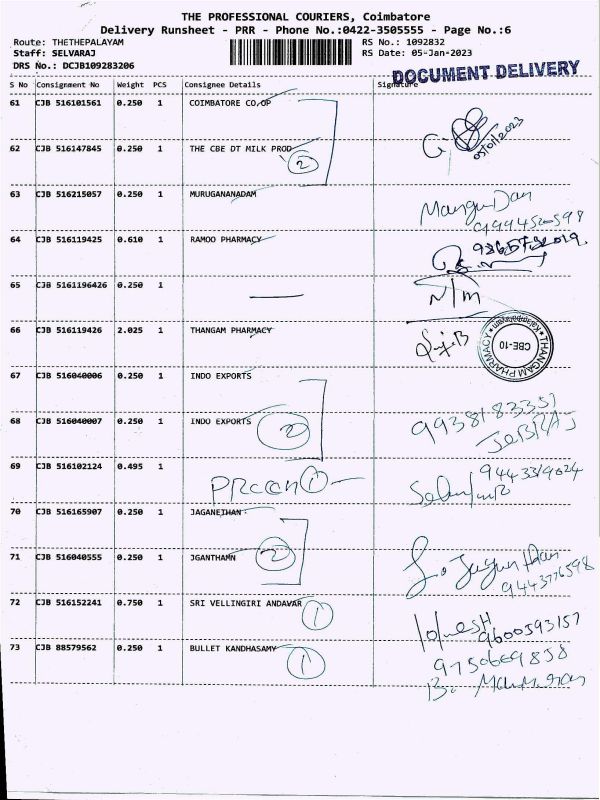 THE PROFESSIONAL COURIERS, Coimbatore
Delivery Runsheet - PRR - Phone No.:0422-3505555 - Page No.:6
Route: THETHEPALAYAM RS No.: 1092832
Staff: SELVARAJ RS Date: 05-Jan-2023
DRS No.: DCJB109283206
DOCUMENT DELIVERY
S No Consignment No Weight PCS Consignee Details Signature
61 CJB 516101561 0.250 1 COIMBATORE CO,OP
05/01/2023
62 CJB 516147845 0.250 1 THE CBE DT MILK PROD
2
63 CJB 516215057 0.250 1 MURUGANANADAM
64 CJB 516119425 0.610 1 RAMOO PHARMACY
65 CJB 5161196426 0.250 1 N/m
66 CJB 516119426 2.025 1 THANGAM PHARMACY
THANGAM PHARMACY CBE-10
67 CJB 516040006 0.250 1 INDO EXPORTS
68 CJB 516040007 0.250 1 INDO EXPORTS 2
69 CJB 516102124 0.495 1 1
70 CJB 516165907 0.250 1 JAGANETHAN
71 CJB 516040555 0.250 1 JGANTHAMN 2
9443776598
72 CJB 516152241 0.750 1 SRI VELLINGIRI ANDAVAR 1
9600593157
73 CJB 88579562 0.250 1 BULLET KANDHASAMY 1